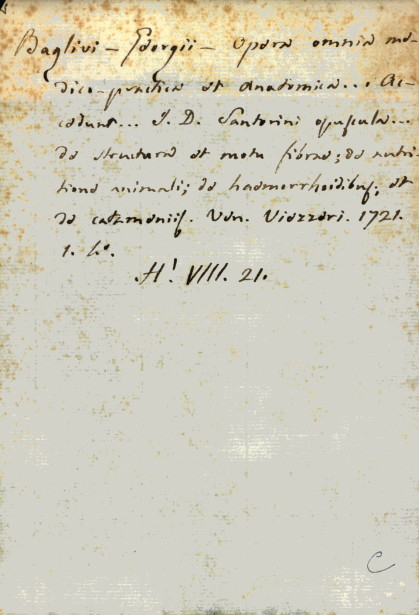 Baglivi - Georgii - Opera omnia me-
dico-practica et Anatomica... Ac-
cedunt... J. D. Santorini opuscula...
de structura et motu fibrae; de nutri-
tione animali; de haemorrhoidibus; et
de catameniis. Ven. Viezzeri. 1721.
1. 4°.
H! VIII. 21.
C